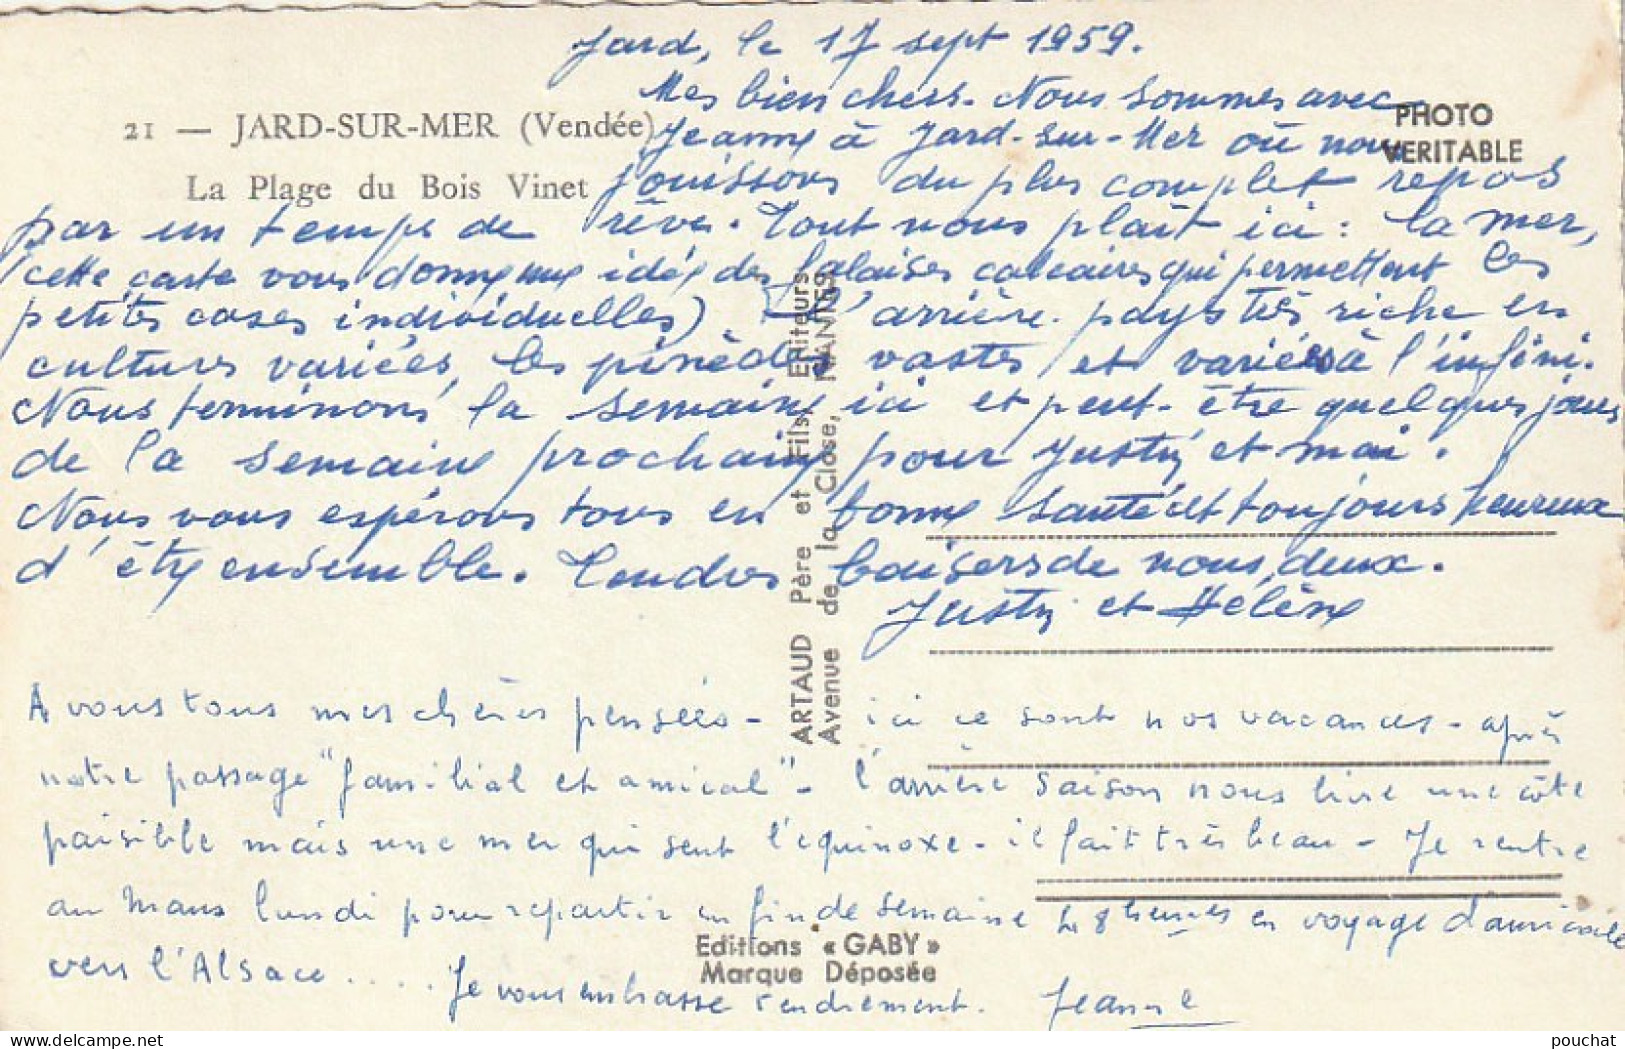 Jard, le 17 sept 1959.
Mes bien chers. Nous sommes avec
21 — JARD-SUR-MER (Vendée)
Jeanne à Jard-sur-Mer où nous
PHOTO
VERITABLE
La Plage du Bois Vinet
jouissons du plus complet repos
par un temps de rêve. Tout nous plaît ici : la mer,
(cette carte vous donne une idée des falaises calcaires qui permettent les
petites cases individuelles). L'arrière-pays très riche en
cultures variées, les pinèdes vastes et variées à l'infini.
Nous terminons la semaine ici et peut-être quelques jours
de la semaine prochaine pour Justin et moi.
Nous vous espérons tous en bonne santé et toujours heureux
d'être ensemble. Tendres baisers de nous deux.
Justin et Hélène
ARTAUD Père et Fils, Editeurs
Avenue de la Close, NANTES
A vous tous mes chères pensées - ici ce sont nos vacances - après
notre passage "familial et amical" - l'arrière saison nous livre une côte
paisible mais une mer qui sent l'equinoxe - il fait très beau - Je rentre
au Mans lundi pour repartir en fin de semaine 48 heures en voyage d'amicale
vers l'Alsace.... Je vous embrasse tendrement. Jeanne
Editions « GABY »
Marque Déposée
pouchat